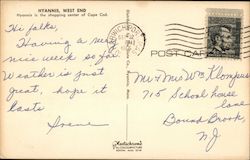 HYANNIS, WEST END
Hyannis is the shopping center of Cape Cod.
Hi folks,
Having a very
nice week so far.
Weather is just
great, hope it
lasts
Irene
POST CARD
Mr & Mrs Wm Klompus
715 School house
lane
Bound Brook,
N.J.